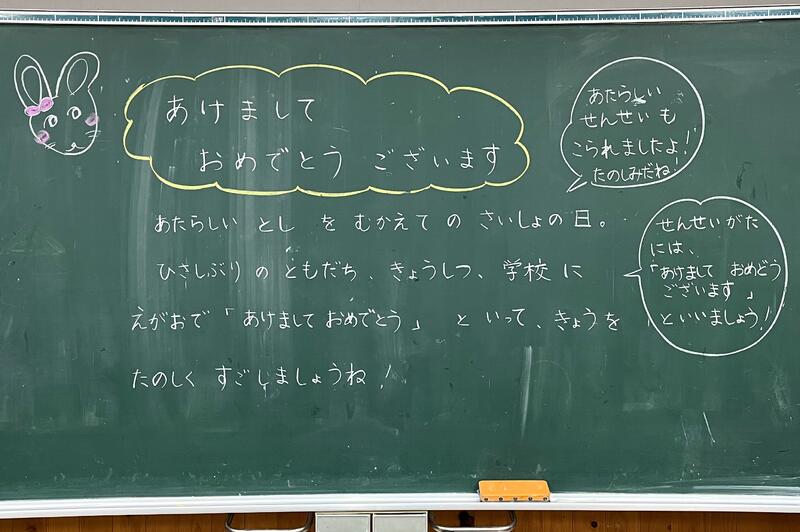 あけまして
おめでとう ございます
あたらしい
せんせいも
こられましたよ!
たのしみだね!
あたらしい とし を むかえての さいしょの日。
ひさしぶり の ともだち、きょうしつ、学校 に
えがおで「あけまして おめでとう」 と いって、きょうを
たのしく すごしましょうね!
せんせいがた
には、
「あけまして おめどう
ございます」
といいましょう!